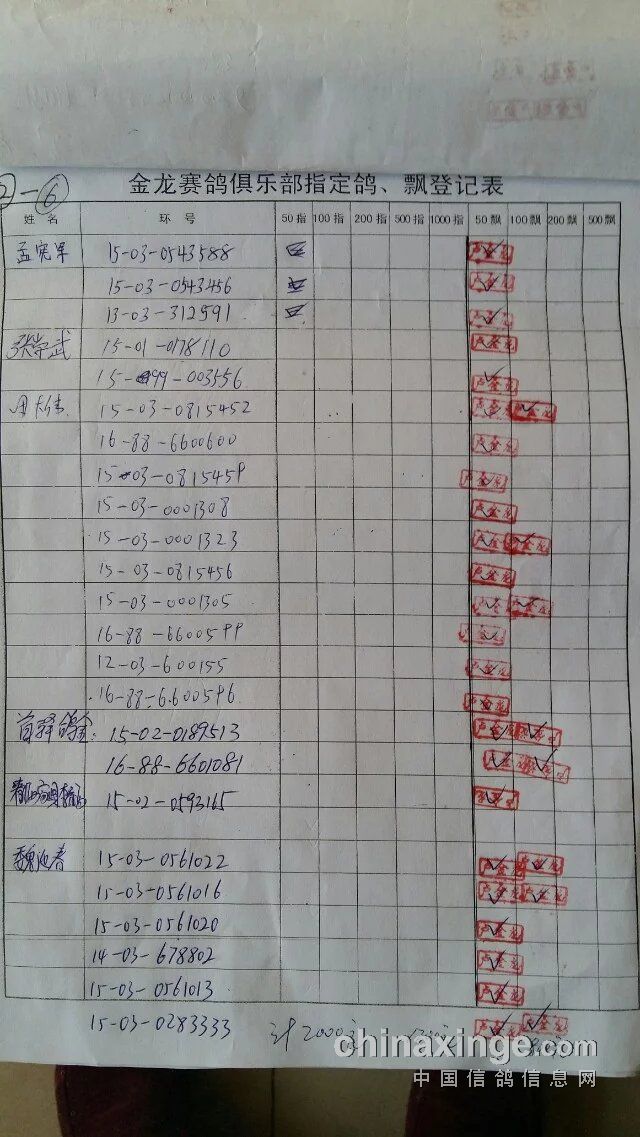 ②-⑥ 金龙赛鸽俱乐部指定鸽、飘登记表
姓名 环号 50指 100指 200指 500指 1000指 50飘 100飘 200飘 500飘
孟宪军 15-03-0543588
15-03-0543456
13-03-312591
张学武 15-01-0178110
15-99-003556
15-03-0815452
16-88-6600600
15-03-0815459
15-03-0001308
15-03-0001323
15-03-0815456
15-03-0001305
16-88-6600599
12-03-600155
16-88-6600596
15-02-0189513
16-88-6601081
15-02-0593165
魏迎春 15-03-0561022
15-03-0561016
15-03-0561020
14-03-678802
15-03-0561013
15-03-0283333 计2000
chinaxinge.com
中国信鸽信息网